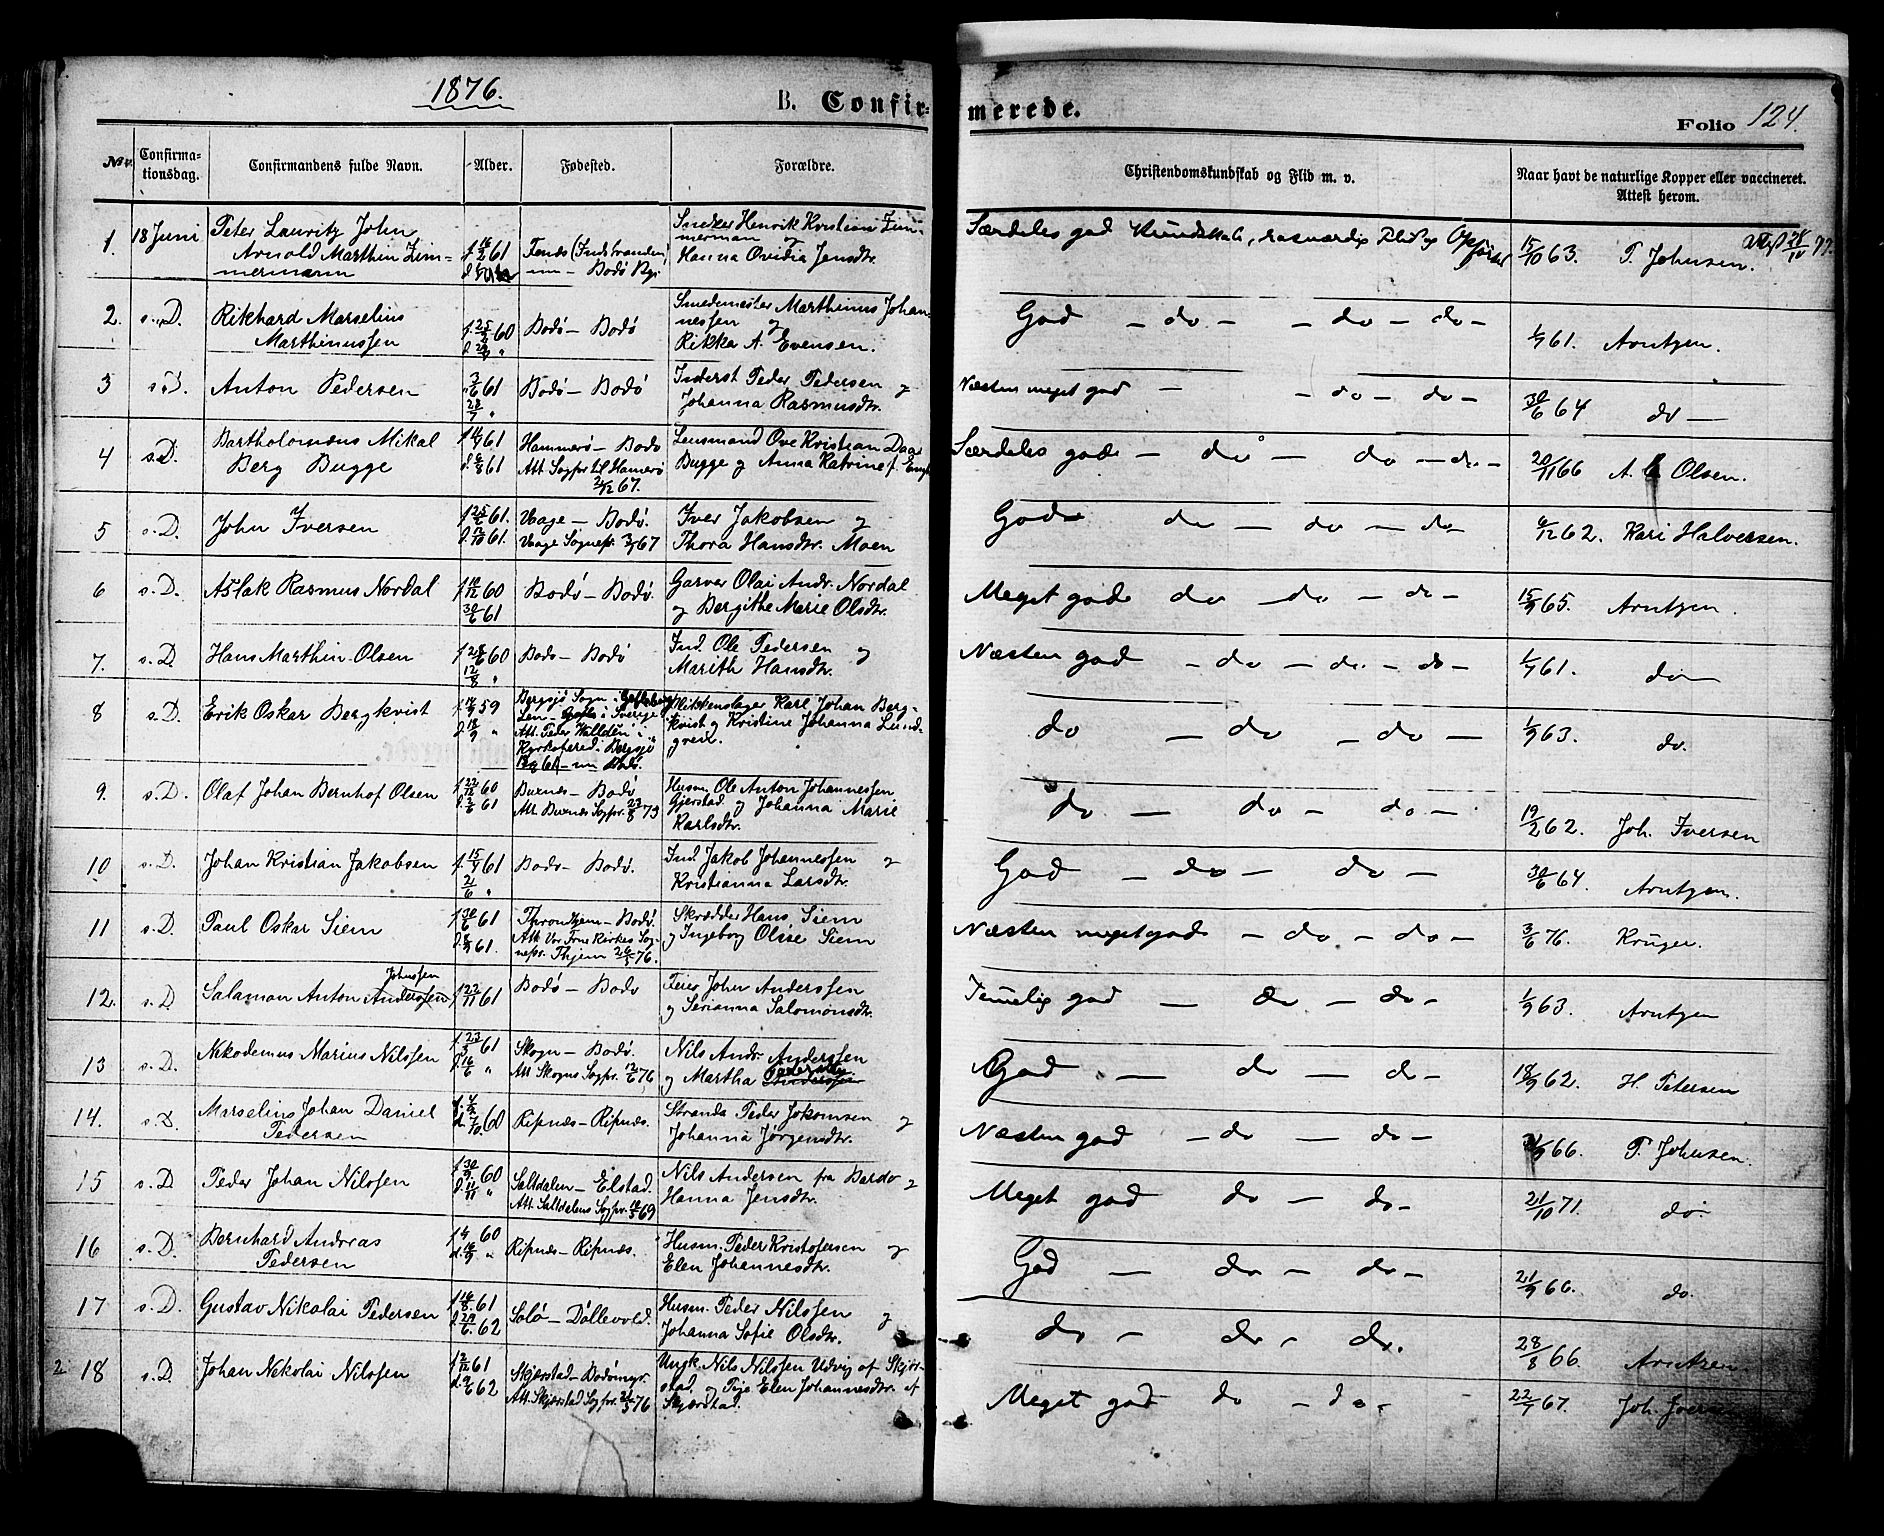 1876.
B. Confirmerede.
Folio 124.
No.
Confirmationsdag.
Confirmandens fulde Navn.
Alder.
Fødested.
Forældre.
Christendomskundskab og Flid m. v.
Naar havt de naturlige Kopper eller vaccineret.
Attest herom.
1. 18 Juni
Peter Lauritz John
Arnold Marthin Zimmermann
61
Bodø
Snedker Henrik Kristian Zimmermann og
Hanna Ovidia Jensdtr.
Særdeles god Kundskab, rosværdig Flid og Opførsel
15/10 63. P. Johnsen.
2. s. D.
Rikhard Marselius
Marthinussen
60
Bodø – Bodø
Smedmester Marthinus Johannessen og
Rikka A. Evensen.
God – do – – do – do –
61. Arntzen.
3 s. D.
Anton Pedersen
3/6 61
28/7 "
Bodø – Bodø
Inderst Peder Pedersen og
Johanna Rasmusdtr.
Næsten meget god – – do – do –
30/6 64 do –
4 s. D.
Bartholomæus Mikal
Berg Bugge
61
61
Hammerø – Bodø
Att. Sogpr. til Hamerø
2/12 67.
Lensmand Ove Kristian Daae
Bugge og Anna Katrine f. Engh
Særdeles god – do – do – do –
20/11 66 A. Olsen.
5 s. D.
John Iversen
61.
61.
Vaage – Bodø.
Vaage Sognepr. 67
Iver Jakobsen og
Thora Hansdtr. Moen
God do – do – do
6/12 62. Kari Halversen.
6 s. D.
Aslak Rasmus Nordal
60
30/6 61
Bodø – Bodø.
Garver Olai Andr. Nordal
og Bergithe Marie Olsdtr.
Meget god do – do – do –
15/9 65. Arntzen.
7. s. D.
Hans Marthin Olsen
28/6 60
12/8 "
Bodø – Bodø
Ind. Ole Pedersen og
Marith Hansdtr.
Næsten god – do – do – do –
61. do
8 s. D.
Erik Oskar Bergkvist
59
Bergsjø Sogn i
Len – i Sverige
Att. Peder
Bergsjø
Bodø.
Karl Johan Bergkvist og Kristine Johanna Lundgren.
do – do – do –
63. do.
9. s. D.
Olaf Johan Bernhof Olsen
22/12 60
61
Buxnæs – Bodø
Att. Buxnæs Sogpr. 23/8 73
Husm. Ole Anton Johannessen
Gjerstad og Johanna Marie
Karlsdtr.
do – do – do –
19/2 62. Joh. Iversen
10 s. D.
Johan Kristian Jakobsen
15/4 61
2/6 "
Bodø – Bodø.
Ind. Jakob Johannessen og
Kristianna Larsdtr.
God – do – do –
30/6 64. Arntzen.
11 s. D.
Paul Oskar Siem
30/6 61
61.
Throndhjem – Bodø.
Att. Vor Frue Kirkes Sognepr. Thjem 26/5 76.
Skrædder Hans Siem
og Ingeborg Olsse Siem
Næsten meget god – do – do –
3/6 76. Krüger.
12. s. D
Johnsen
Salamon Anton Anderssen
22/11 61
Bodø – Bodø
Feier John Anderssen
og Serianna Salomonsdtr.
Temelig god – do – do –
63. Arntzen
13 s. D.
Nikodemus Marius Nilssen
23/3 61
16/6 "
Skogn – Bodø.
Att. Skogns Sogpr. 12/6 76.
Nils Andr. Anderssen
og Martha
God – do – do –
18/9 62. H. Petersen
14. s. D.
Marselius Johan Daniel
Pedersen
60
Ripnæs – Ripnæs.
Strands. Peder Jokomsen og
Johanna Jørgensdtr.
Næsten god – do – do –
66. P. Johnsen.
15 s. D
Peder Johan Nilssen
30/9 60
Saltdalen – Elstad.
Att. Saltdalens Sogpr. 69
Nils Andersen fra Bardo og
Hanna Jensdtr.
Meget god do – do –
21/10 71. do.
16 s. D.
Bernhard Andreas
Pedersen
60
Ripnæs – Ripnæs.
Husm. Peder Kristofersen og
Elen Johannesdtr.
God – do – do –
21/9 66. do.
17 s. D.
Gustav Nikolai Pedersen
16/8 61
29/6 62
Solø – Døllevold.
Husm. Peder Nilssen og
Johanna Sofie Olsdtr.
do – do – do.
28/8 66. Arntzen.
2 18 s. D.
Johan Nikolai Nilssen
2/12 61
62
Skjerstad – Bodømyr.
Att. Skjerstad Sogpr. 76
Ungk. Nils Nilssen Udvig af Skjerstad og Pige Elen Johannesdtr. af
Skjerstad.
Meget god do – do –
22/7 67. Joh. Iversen